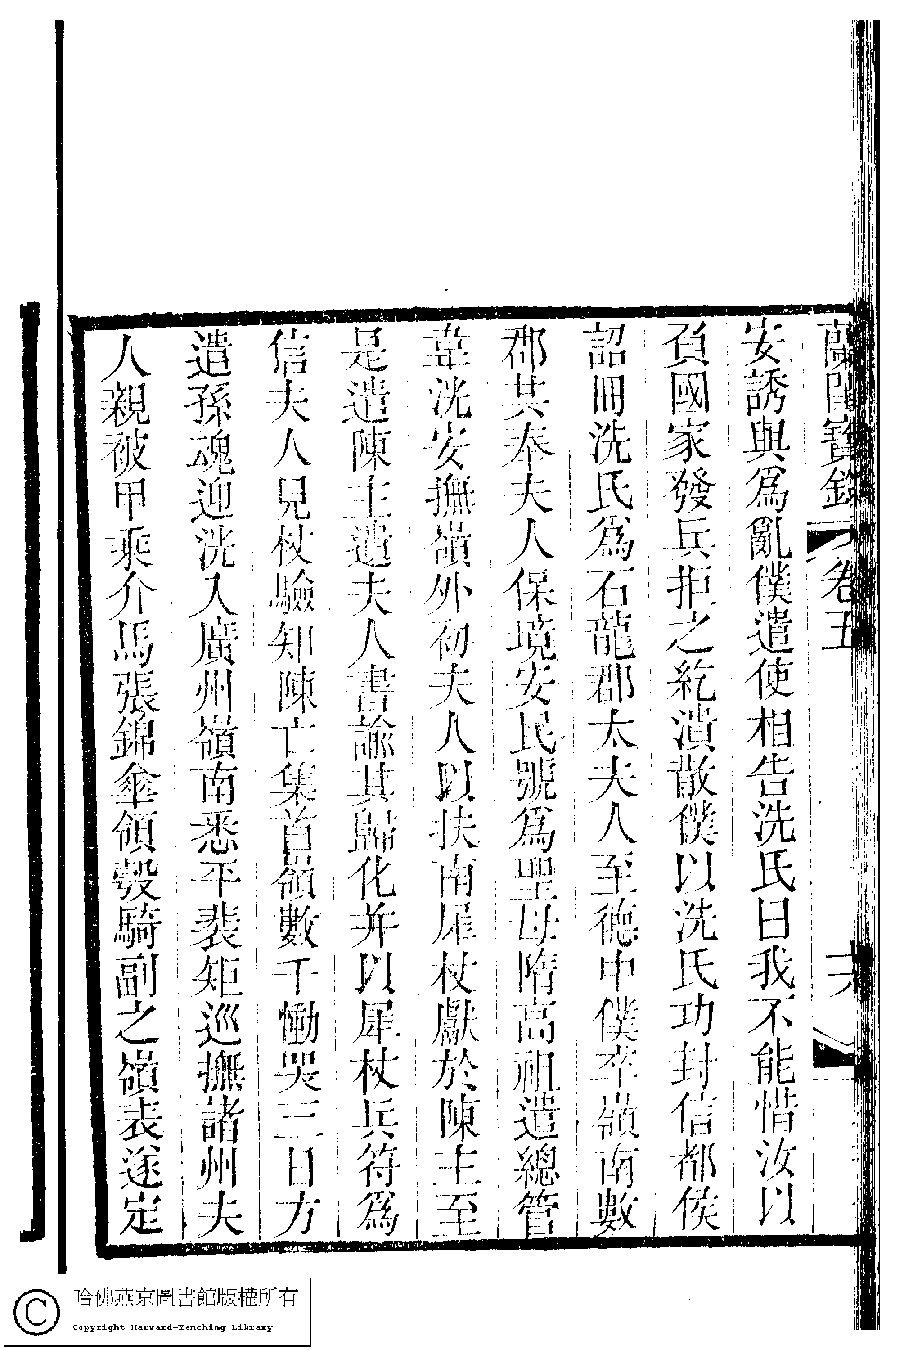 蘭閨寶錄 卷五 十六
安誘與爲亂僕遣使相告洗氏曰我不能惜汝以
負國家發兵拒之紇潰散僕以洗氏功封信都侯
詔冊洗氏爲石龍郡太夫人至德中僕卒嶺南數
郡共奉夫人保境安民號爲聖母隋高祖遣總管
韋洸安撫嶺外初夫人以扶南犀杖獻於陳主至
是遣陳主遺夫人書諭其歸化并以犀杖兵符爲
信夫人見杖驗知陳亡集首領數千慟哭三日方
遣孫魂迎洸入廣州嶺南悉平裴矩巡撫諸州夫
人親被甲乘介馬張錦傘領彀騎副之嶺表遂定
哈佛燕京圖書館版權所有
Copyright Harvard-Yenching Library